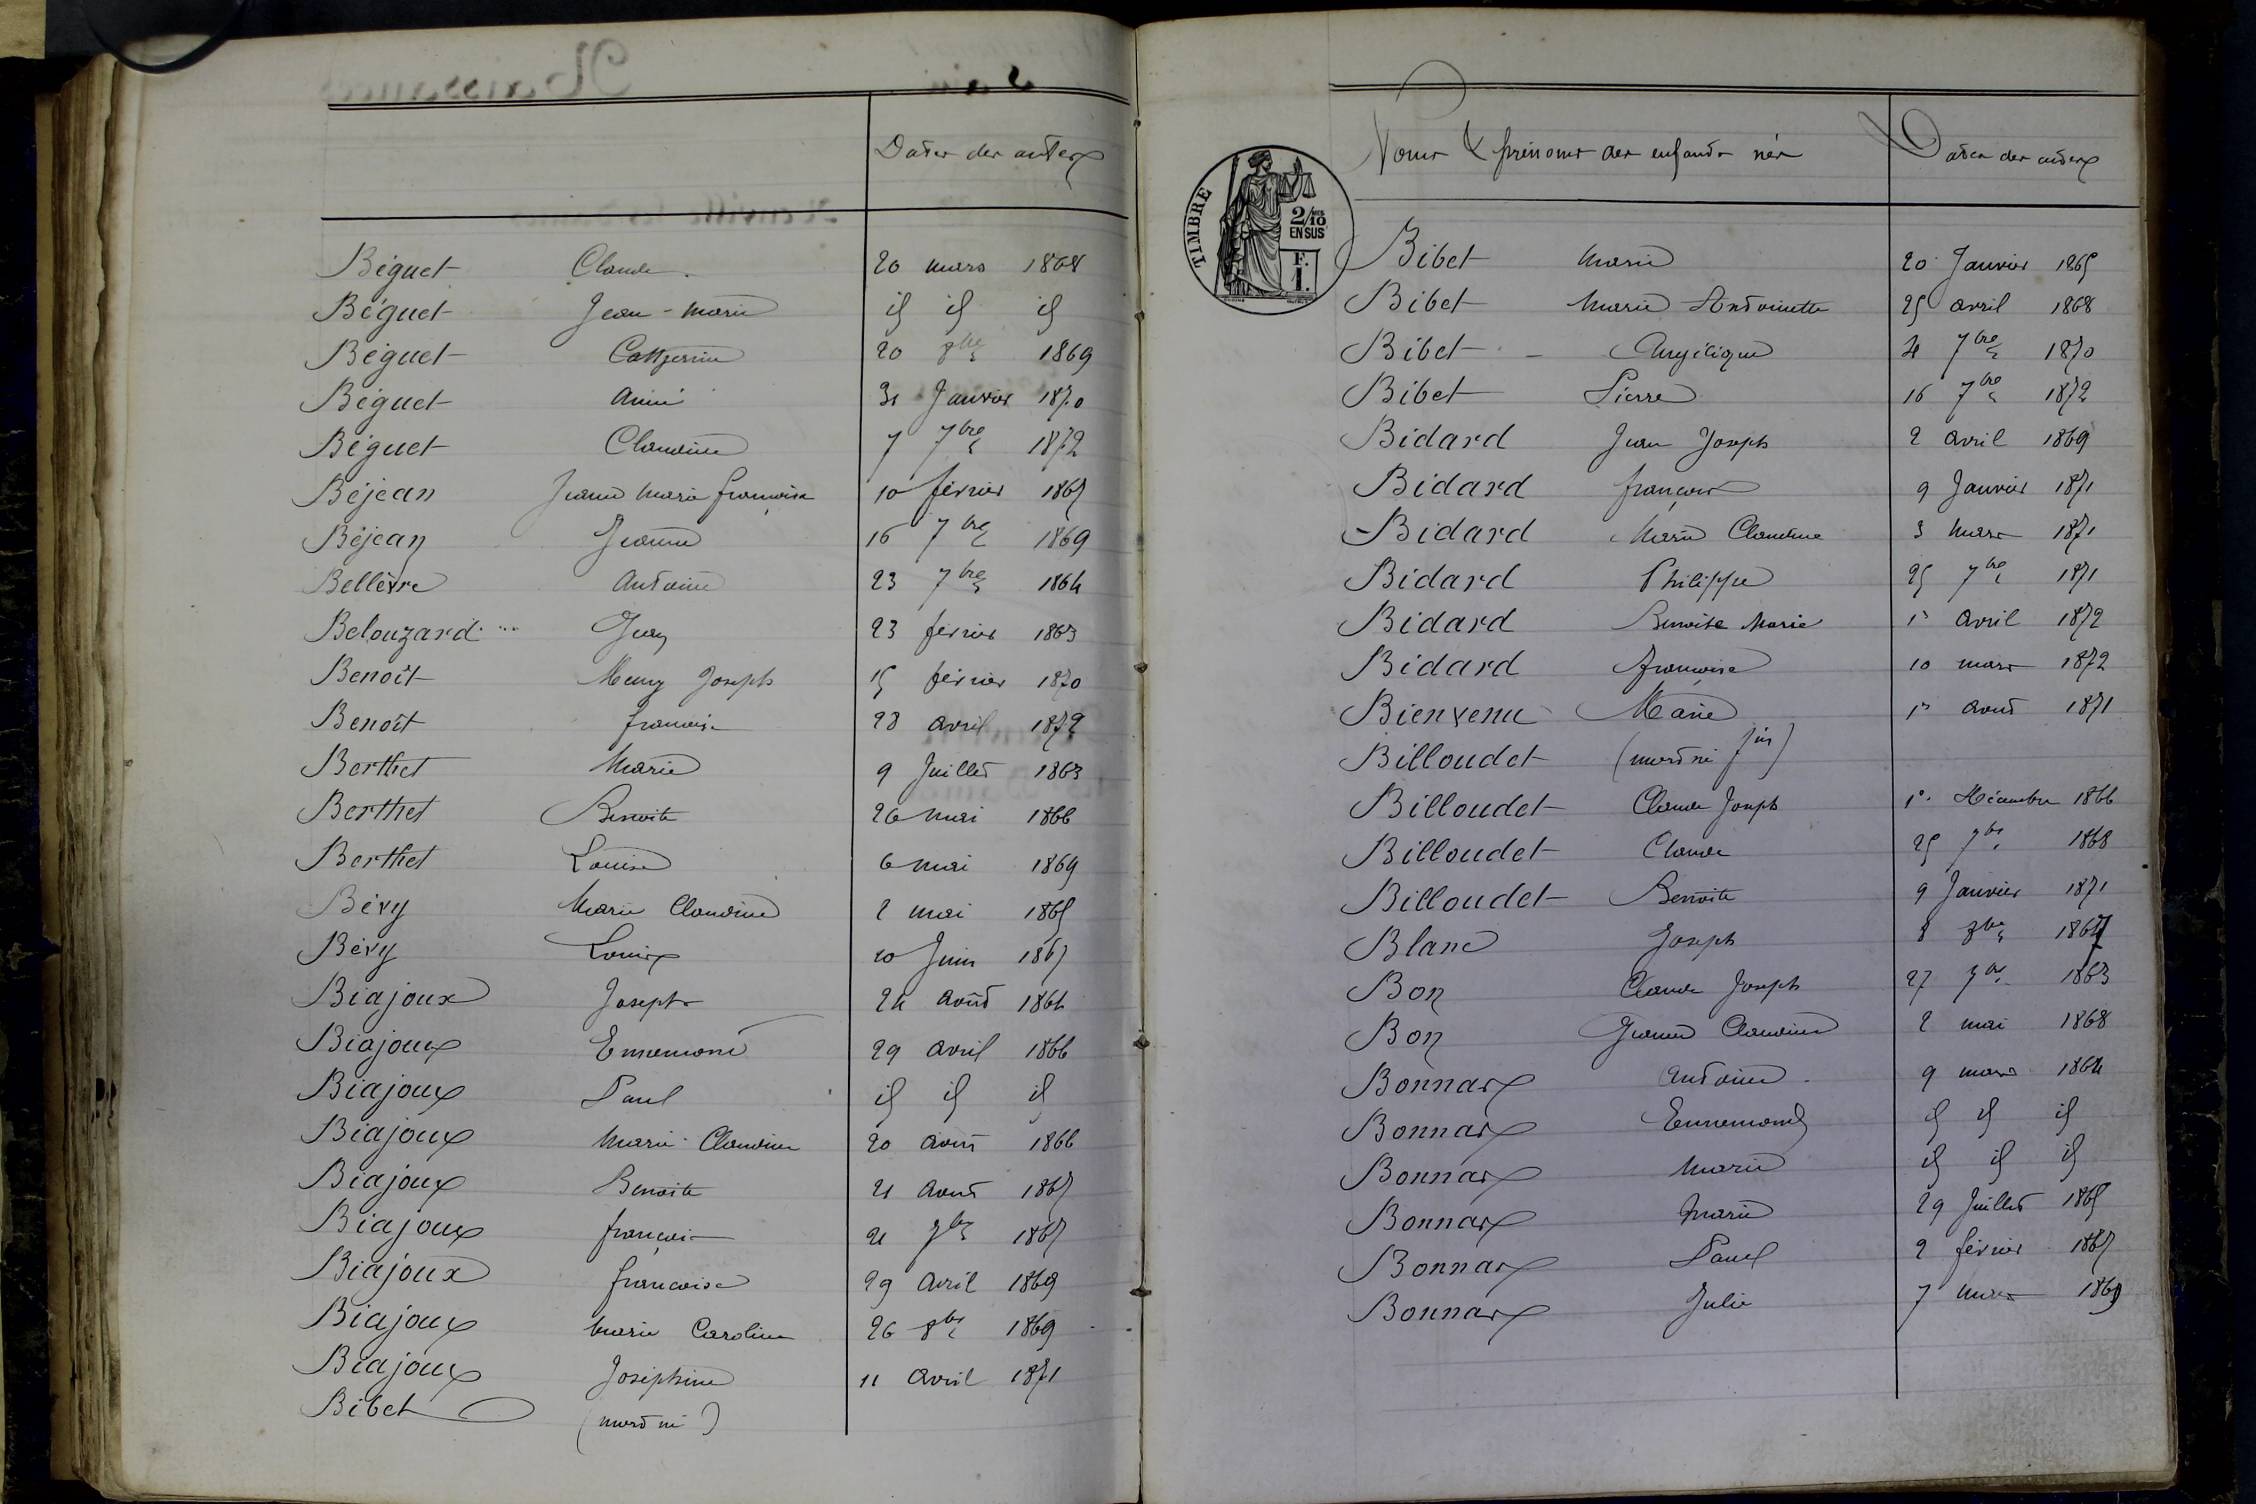 Dates des actes
Béguet Claude 20 mars 1868
Béguet Jean-Marie id id id
Béguet Catherine 20 8bre 1869
Béguet Aimé 31 Janvier 1870
Béguet Claudine 7 7bre 1872
Béjean Jeanne Marie françoise 10 février 1867
Béjean Jeanne 16 7bre 1869
Bellèvre Antoine 23 7bre 1864
Belouzard Jean 23 février 1863
Benoît Joseph 15 février 1870
Benoît françoise 28 avril 1872
Berthet Marie 9 Juillet 1863
Berthet Benoite 26 mai 1866
Berthet Louise 6 mai 1869
Bévy Marie Claudine 2 mai 1865
Bévy Louise 20 Juin 1867
Biajoux Joseph 24 août 1864
Biajoux Ennemond 29 avril 1866
Biajoux Paul id id id
Biajoux Marie Claudine 20 août 1866
Biajoux Benoite 21 août 1867
Biajoux françois 21 7bre 1867
Biajoux françoise 29 avril 1869
Biajoux Marie Caroline 26 8bre 1869
Biajoux Joséphine 11 avril 1871
Bibet (mort né)
TIMBRE
2/10
EN SUS
F.
1.
Noms & prénoms des enfants nés Dates des actes
Bibet Marie 20 Janvier 1865
Bibet Marie Antoinette 25 avril 1868
Bibet Angélique 4 7bre 1870
Bibet Pierre 16 7bre 1872
Bidard Jean Joseph 2 avril 1869
Bidard françois 9 Janvier 1871
Bidard Marie Claudine 3 mars 1871
Bidard Philippe 25 7bre 1871
Bidard Benoite Marie 1er avril 1872
Bidard françoise 10 mars 1872
Bienvenu Marie 1er août 1871
Billoudet (mort né)
Billoudet Claude Joseph 1er Décembre 1866
Billoudet Claude 25 7bre 1868
Billoudet Benoite 9 Janvier 1871
Blanc Joseph 8 8bre 1867
Bon Claude Joseph 27 7bre 1863
Bon Jeanne Claudine 2 mai 1868
Bonnard Antoine 9 mars 1864
Bonnard Ennemond id id id
Bonnard Marie id id id
Bonnard Marie 29 Juillet 1865
Bonnard Paul 2 février 1867
Bonnard Julie 7 mars 1869